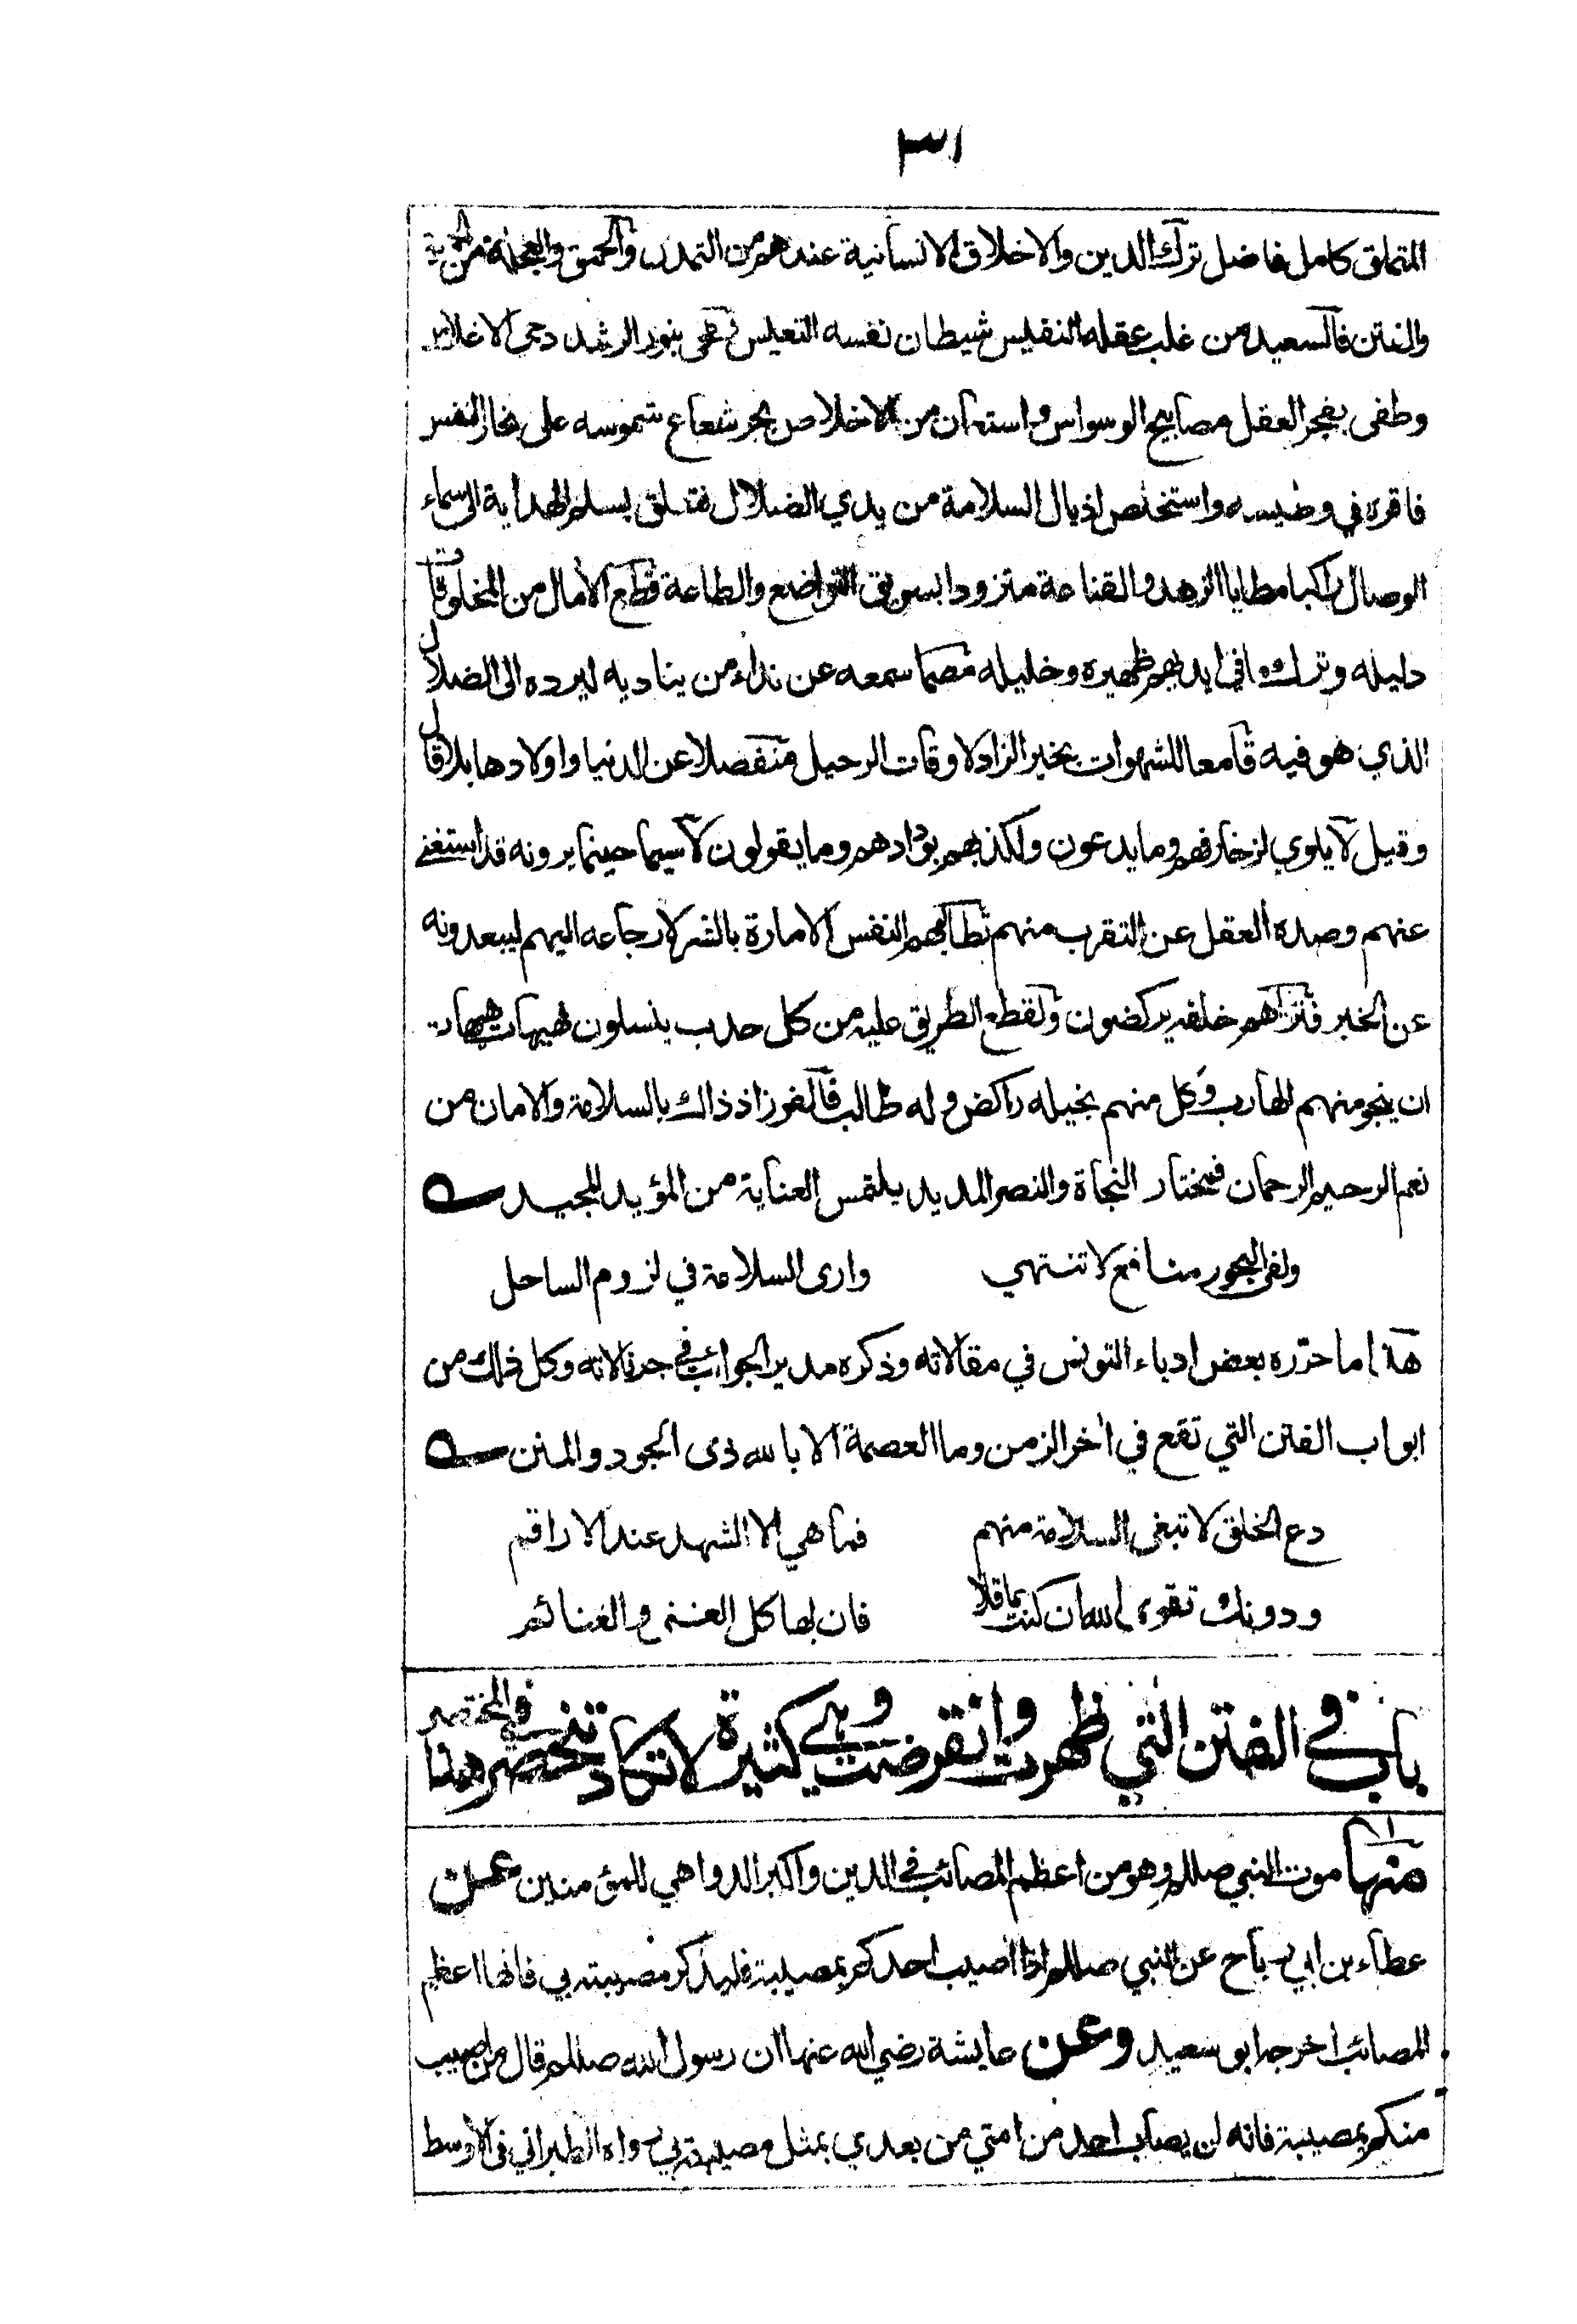 ٣١
المتملق كامل فاضل ترك الدين والاخلاق الانسانية عندهم من التمدن والحمق والعجلة من الحرية
والفتن فالسعيد من غلب عقله النفيس شيطان نفسه التعيس فمحى بنور الرشد دجى الاغلاس
وطفى بفجر العقل مصابيح الوسواس واستعان من الاخلاص بحر شعاع شموسه على بخار النفس
فاقره في وطيسه واستخلص اذيال السلامة من يدي الضلال فتسلق بسلم الهداية الى سماء
الوصال راكبا مطايا الزهد والقناعة متزودا بسويق التواضع والطاعة قطع الآمال من المخلوقات
دليله وترك ما في ايديهم ظهيره وخليله مصما سمعه عن نداء من يناديه ليرده الى الضلال
الذي هو فيه قامعا للشهوات بخير الزاد لاوقات الرحيل منفصلا عن الدنيا واولادها بلا قال
وقيل لا يلوي لزخارفهم وما يدعون ولكذبهم بودادهم وما يقولون لاسيما حينما يرونه قد استغنى
عنهم وصده العقل عن التقرب منهم تطالبهم النفس الامارة بالشر لارجاعه اليهم ليبعدونه
عن الخير فتراهم خلفه يركضون ولقطع الطريق عليه من كل حدب ينسلون فهيهات هيهات
ان ينجو منهم الهارب وكل منهم بخيله راكض وله طالب فالفوز اذ ذاك بالسلامة والامان من
نعم الرحيم الرحمان فمختار النجاة والنصر المديد يلتمس العناية من المؤيد المجيد
وفى البحور منافع لا تنتهي وارى السلامة في لزوم الساحل
هذا ما حرره بعض ادباء التونس في مقالاته وذكره مدير الجوائب في جرنالاته وكل ذلك من
ابواب الفتن التي تقع في آخر الزمن وما العصمة الا بالله ذى الجود والمنن
دع الخلق لا تبغى السلامة منهم فما هي الا الشهد عند الاراقم
ودونك تقوى الله ان كنت عاقلا فان بها كل الغنم والغنائم
باب في الفتن التي ظهرت وانقرضت وهي كثيرة لا تكاد تنحصر في المختصر هذا
منها موت النبي صللم وهو من اعظم المصائب في الدين واكبر الدواهي للمؤمنين عن
عطاء بن ابي رباح عن النبي صللم اذا اصيب احدكم بمصيبة فليذكر مصيبته بي فانها اعظم
المصائب اخرجه ابو سعيد وعن عايشة رضي الله عنها ان رسول الله صللم قال من اصيب
منكم بمصيبة فانه لن يصاب احد من امتي من بعدي بمثل مصيبته بي رواه الطبراني في الاوسط